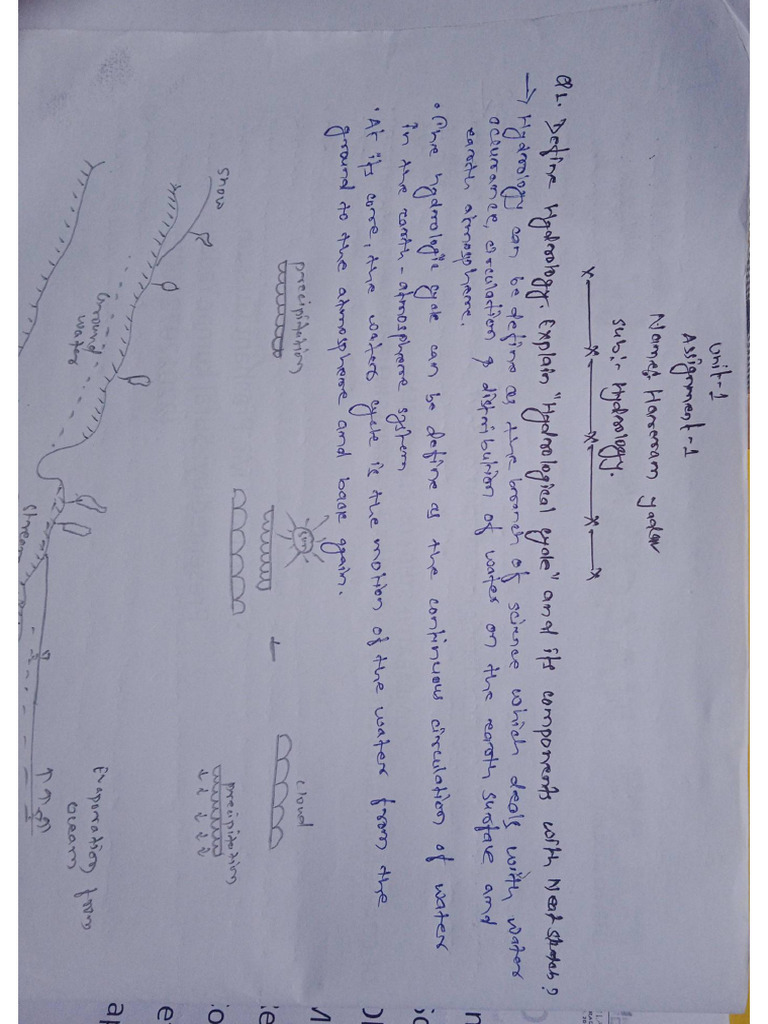 Unit-1
Assignment-1
Name:- Hareram yadav
Sub:- Hydrology.
Q1. Define Hydrology. Explain "Hydrological cycle" and its components with Neat sketch?
→ Hydrology can be define as the branch of science which deals with water
occurrance, circulation & distribution of water on the earth surface and
earth atmosphere.
• The hydrologic cycle can be define as the continuous circulation of water
in the earth-atmosphere system
• At its core, the water cycle is the motion of the water from the
ground to the atmosphere and back again.
precipitation
sun
cloud
precipitation
snow
Ground
water
Stream
Evaporation from
Ocean